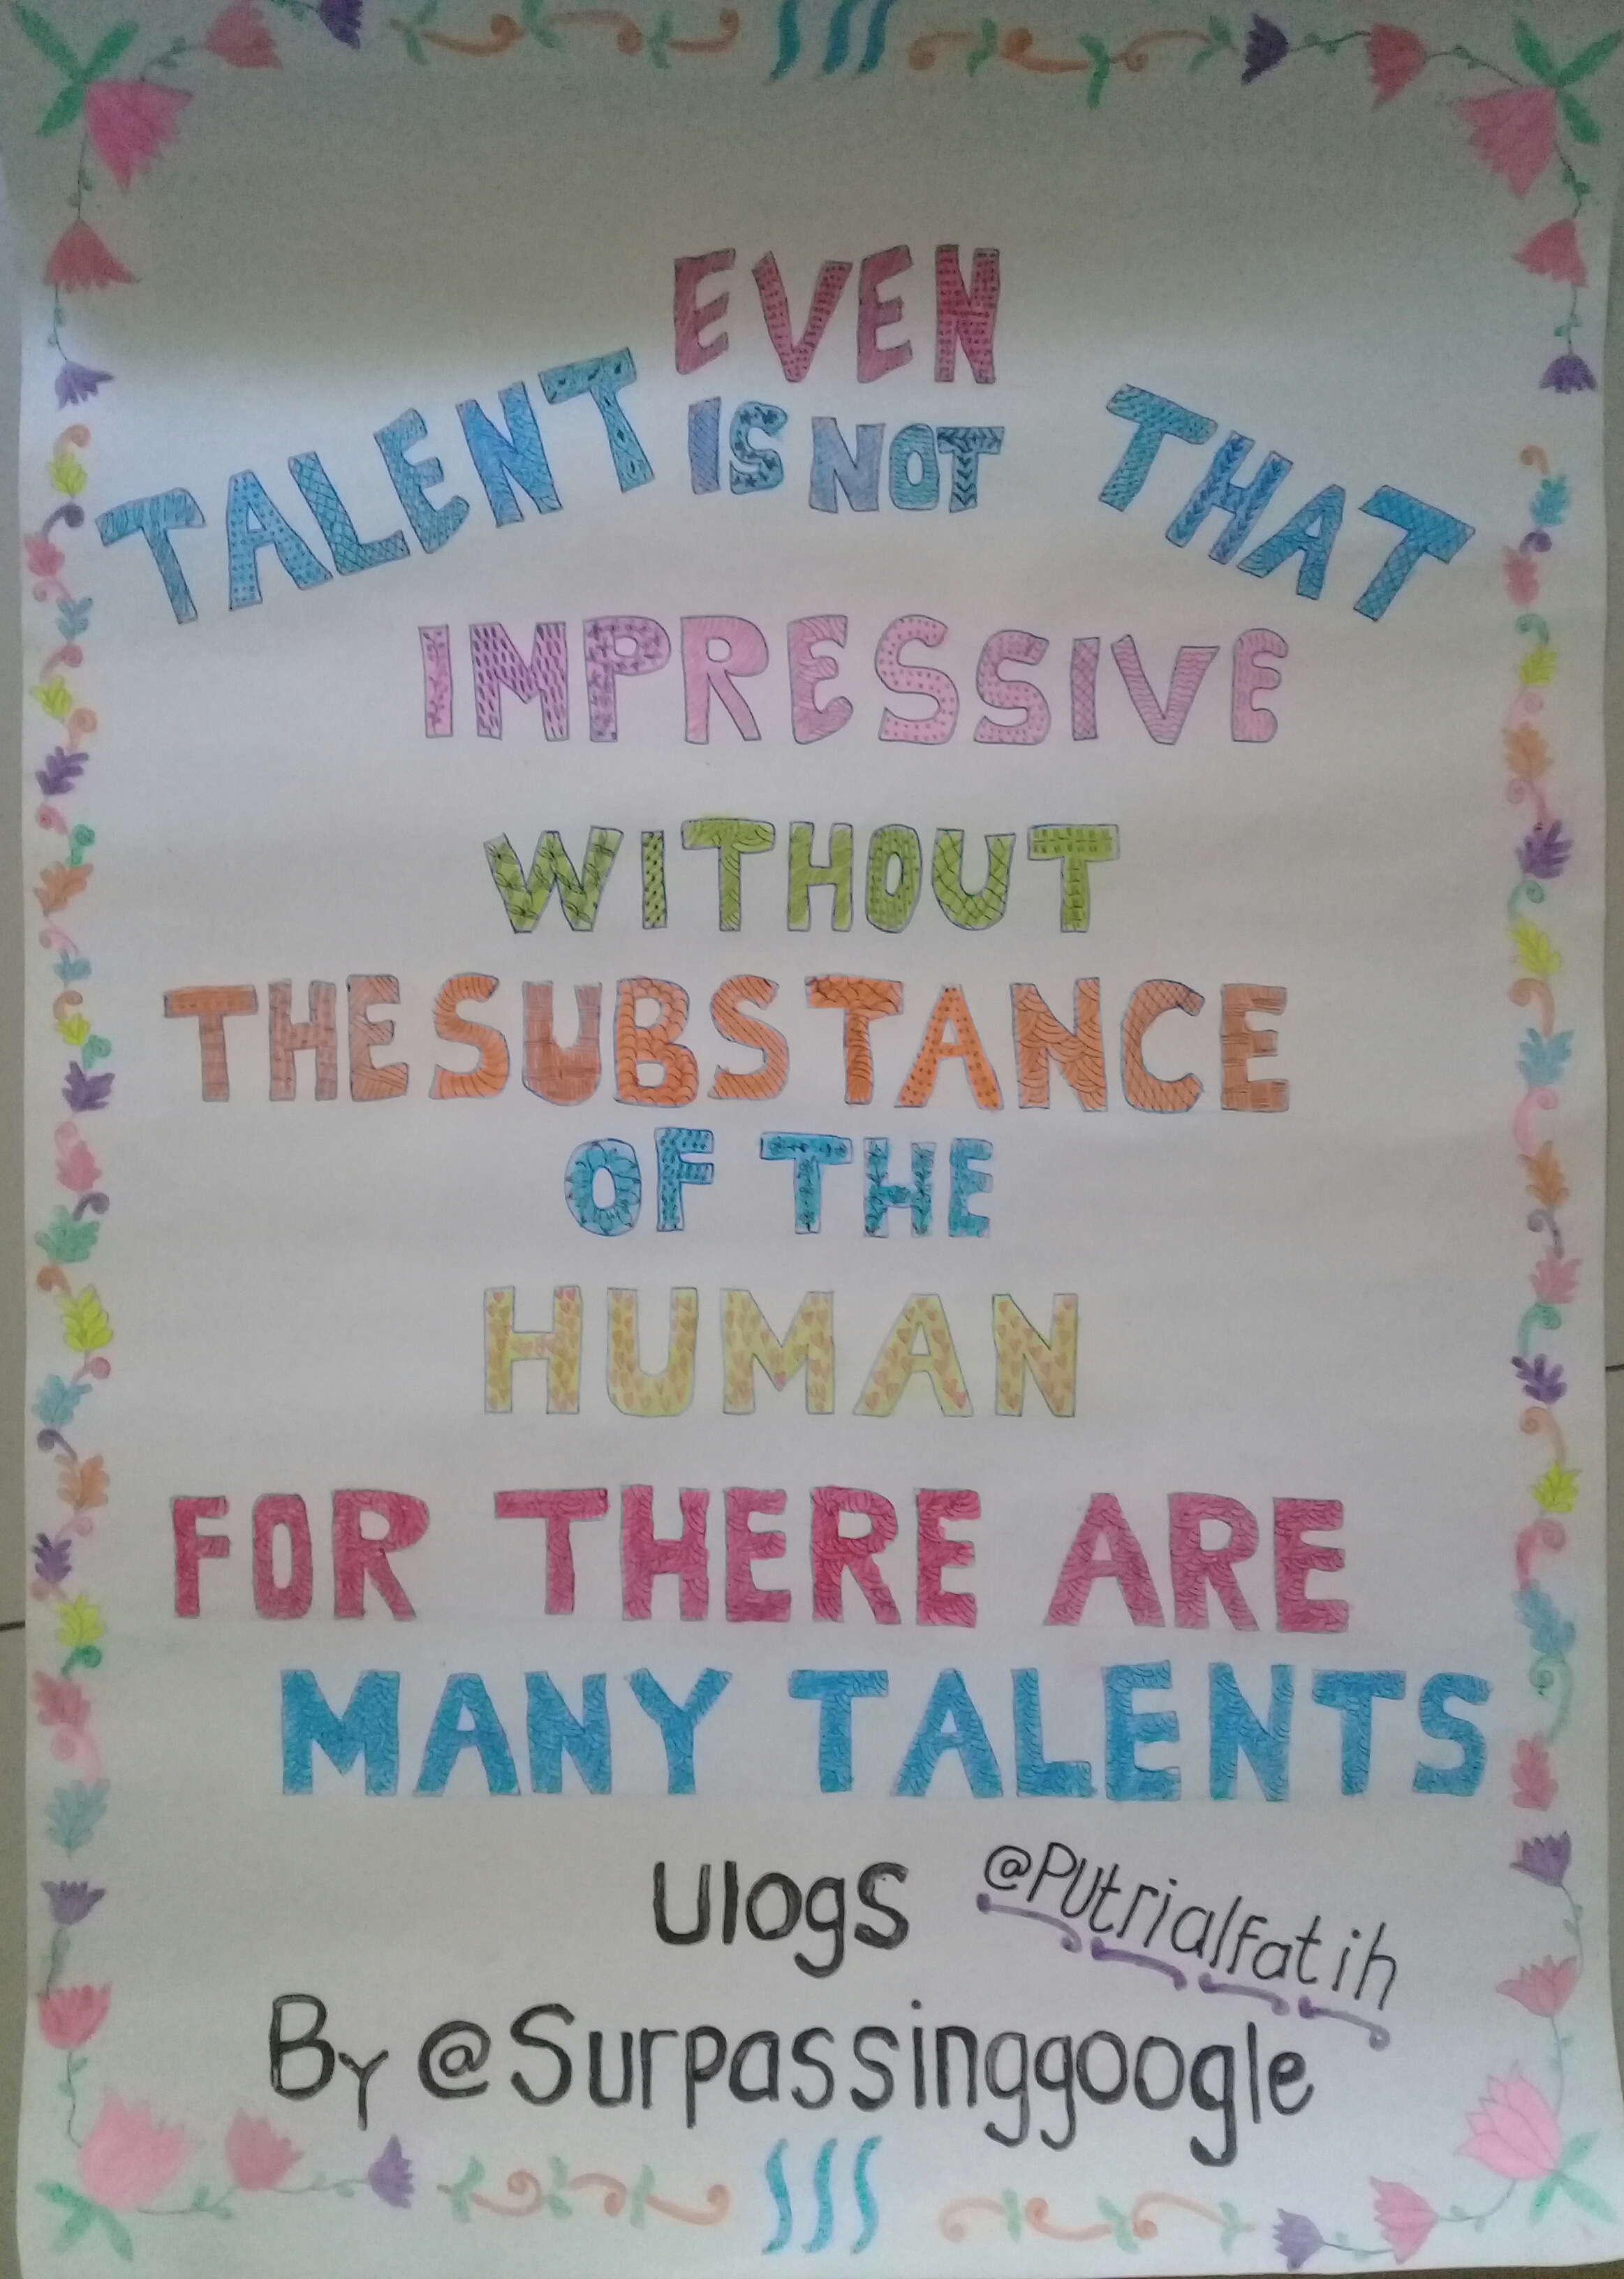 EVEN
TALENT IS NOT THAT
IMPRESSIVE
WITHOUT
THE SUBSTANCE
OF THE
HUMAN
FOR THERE ARE
MANY TALENTS
Ulogs @Putrialfatih
By @Surpassinggoogle